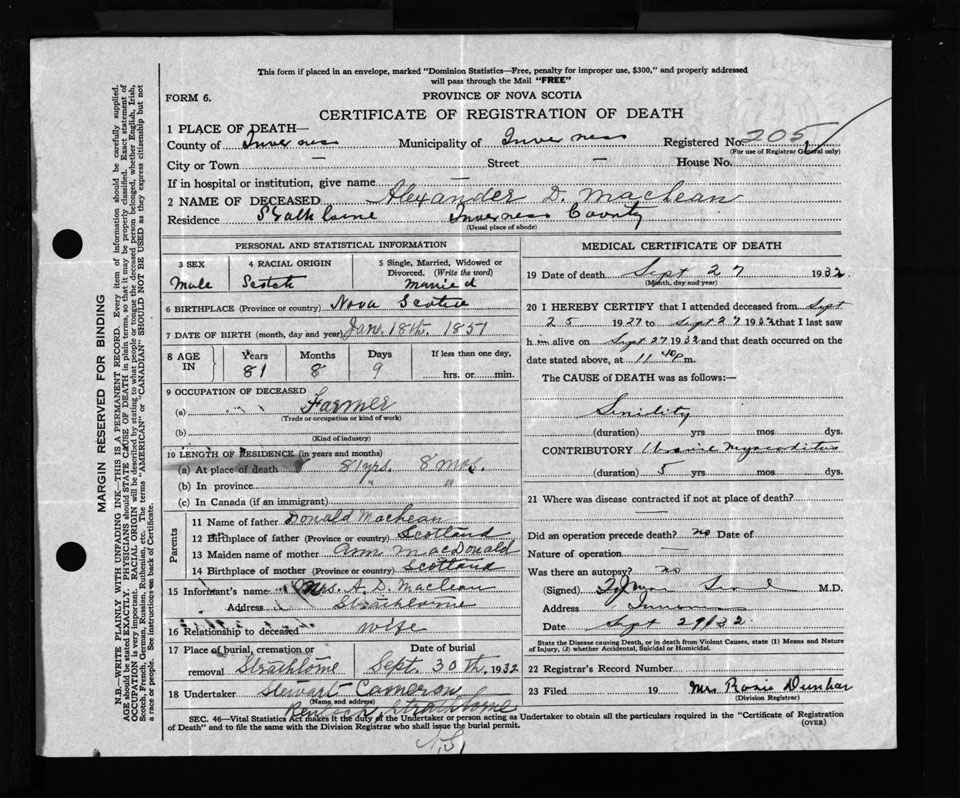 This form if placed in an envelope, marked "Dominion Statistics—Free, penalty for improper use, $300," and properly addressed
will pass through the Mail "FREE"
FORM 6.
PROVINCE OF NOVA SCOTIA
CERTIFICATE OF REGISTRATION OF DEATH
1 PLACE OF DEATH—
County of Inverness Municipality of Inverness Registered No. 205
(For use of Registrar General only)
City or Town — Street — House No.
If in hospital or institution, give name —
2 NAME OF DECEASED Alexander D. MacLean
Residence Strathlorne Inverness County
(Usual place of abode)
PERSONAL AND STATISTICAL INFORMATION
3 SEX 4 RACIAL ORIGIN 5 Single, Married, Widowed or
Divorced. (Write the word)
Male Scotch Married
6 BIRTHPLACE (Province or country) Nova Scotia
7 DATE OF BIRTH (month, day and year) Jan. 18th. 1851
8 AGE IN Years Months Days If less than one day,
81 8 9 hrs. or min.
9 OCCUPATION OF DECEASED
(a) Farmer
(Trade or occupation or kind of work)
(b)
(Kind of industry)
10 LENGTH OF RESIDENCE (in years and months)
(a) At place of death 81 yrs. 8 mos.
(b) In province " "
(c) In Canada (if an immigrant)
Parents
11 Name of father Donald MacLean
12 Birthplace of father (Province or country) Scotland
13 Maiden name of mother Ann MacDonald
14 Birthplace of mother (Province or country) Scotland
15 Informant's name Mrs. A. D. MacLean
Address Strathlorne
16 Relationship to deceased wife
17 Place of burial, cremation or Date of burial
removal Strathlorne Sept. 30th. 1932
18 Undertaker Stewart Cameron
(Name and address)
Strathlorne
N.S.
MEDICAL CERTIFICATE OF DEATH
19 Date of death Sept 27 1932
(Month, day and year)
20 I HEREBY CERTIFY that I attended deceased from Sept
25 1927 to Sept 27 1932 that I last saw
h im alive on Sept 27 1932 and that death occurred on the
date stated above, at 11 40 p m.
The CAUSE of DEATH was as follows:—
Senility
(duration) yrs mos dys.
CONTRIBUTORY Chronic Myocarditis
(duration) 5 yrs mos dys.
21 Where was disease contracted if not at place of death?
—
Did an operation precede death? no Date of
Nature of operation —
Was there an autopsy? no
(Signed) M.D.
Address
Date Sept 29/32
State the Disease causing Death, or in death from Violent Causes, state (1) Means and Nature
of Injury, (2) whether Accidental, Suicidal or Homicidal.
22 Registrar's Record Number
23 Filed 19 Mrs Rosie Dunbar
(Division Registrar)
SEC. 46—Vital Statistics Act makes it the duty of the Undertaker or person acting as Undertaker to obtain all the particulars required in the "Certificate of Registration
of Death" and to file the same with the Division Registrar who shall issue the burial permit. (OVER)
MARGIN RESERVED FOR BINDING
N.B.—WRITE PLAINLY WITH UNFADING INK—THIS IS A PERMANENT RECORD. Every item of information should be carefully supplied.
AGE should be stated EXACTLY. PHYSICIANS should STATE CAUSE OF DEATH in plain terms, so that it may be properly classified. Exact statement of
OCCUPATION is very important. RACIAL ORIGIN will be described by stating to what people or tongue the deceased person belonged, whether English, Irish,
Scotch, French, German, Russian, Ruthenian, etc. The terms "AMERICAN" or "CANADIAN" SHOULD NOT BE USED as they express citizenship but not
a race or people. See instructions on back of Certificate.